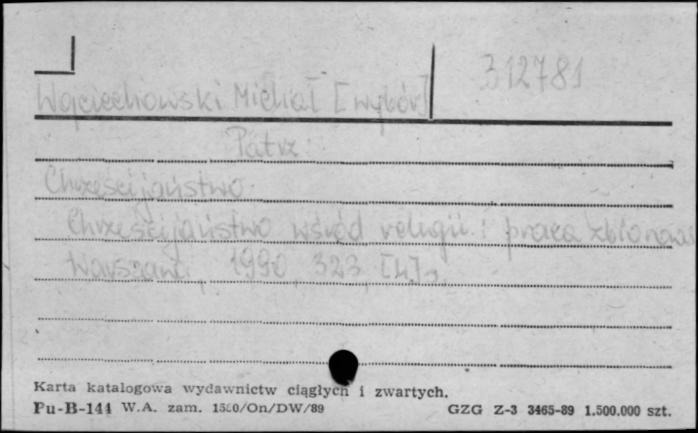 312781
Wojciechowski Michał [wybór]
Patrz:
Chrześcijaństwo.
Chrześcijaństwo wśród religii : praca zbiorowa
Warszawa, 1990, 323, [4] s.
Karta katalogowa wydawnictw ciągłych i zwartych.
Pu-B-144 W.A. zam. 1580/On/DW/89 GZG Z-3 3465-89 1.500.000 szt.